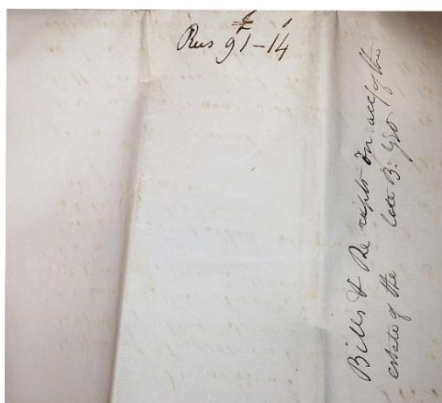 Rus 91-14
Bills & Receipts on acct of the
estate of the late B: